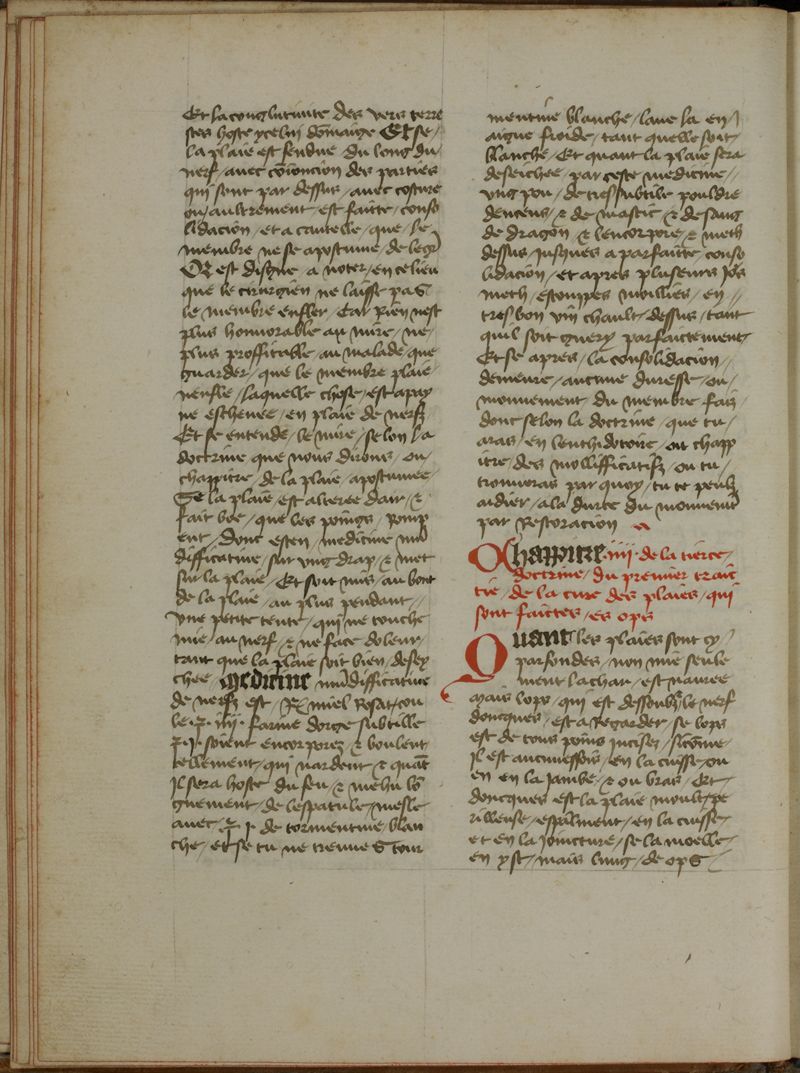 Et la conglutinite des vers terre
stes hoste ycelui domaige Et se /
la plaie est fendue du long du /
nerf / avec coioncion des parties
qui sont par dessus / avec costure
ou / aultrement est faitte / conso
lidacion / et a cautelle / que / le
membre ne se apostume / de leg
Or est digne a noter / en ce lieu
que le cirurgien ne laisse pas
le membre enfler / Car rien nest
plus honnorable au mire / ne /
plus prouffitable / au malade que
guarder / que le membre plaie /
nenfle / laquelle chose / est apuy
ne eschenee / en plaie de nerfz
Et se entende / le mire / selon la
doctrine que nous dirons / ou
chappitre / de la plaie / apostumee /
Se la plaie / est alteree dair / &
fait boe / que les poings / romp
ent / Donc esten / medicine mu
dificative / sur ung drap / & met
sur la plaie / Et soit mis / au bout
de la plaie / au plus pendant //
une petite tente / qui ne touche
mie / au nerf / & ne face doleur /
tant que la plaie soit bien / desey
chee / Medicine mudifficative
de nerfz est / Rx miel rosat / cou
le · ℥ · iiij · farine dorge subtille
℥ · j · soient encorporez / & boulent
tellement / qui nardent & quat
Il sera hoste du feu / & mehu lo
guement / de lespatule / mesle
avec / ℥ j · de tormentine / blan
che / et se tu ne treuve s tour
mentine blanche / lave la en /
aigue froide / tant quelle soit
blanche / Et quant la plaie sera
deseichee / par ceste medicine //
ung pou / de tressubtile pouldre
dencens / & de mastic & de sang
de dragon / & lencorpore / & meth
dessus / jusques a parfaitte conso
lidacion / et apres pluseurs jos
meth / estouppes moullies / en //
tresbon vin chault / dessus / tant
quil soit guery parfaictement
Et se apres / la consolidacion //
demeure / aucune duresse / ou /
mouvement du membre / faiz /
donc selon la doctrine / que tu /
aras / en lenthidotaire / ou chapp
itre / des mollifficatifz / ou tu /
trouveras par quoy / tu te peulz
aidier / a la durte du mouvemt
par restoracion
Chappitre · iiij · de la tierce /
doctrine / du premier trait
tie / de la cure des plaies / qui
sont faictes / es ops
Quant les plaies sont cy /
parfondes / non mie seule
ment la char / est navree
mais lops / qui est dessoubz le nerf
doncques / est a regarder / se lops
est de tous poins incisez / sicome /
Il est aucuneffois / en la cuisse / ou
en en la jambe / & ou bras / Et /
doncques est la plaie moult / pe
rilleuse / espalment / en la cuisse /
et en la joincture / se la moelle /
en yst / mais lung / de ops